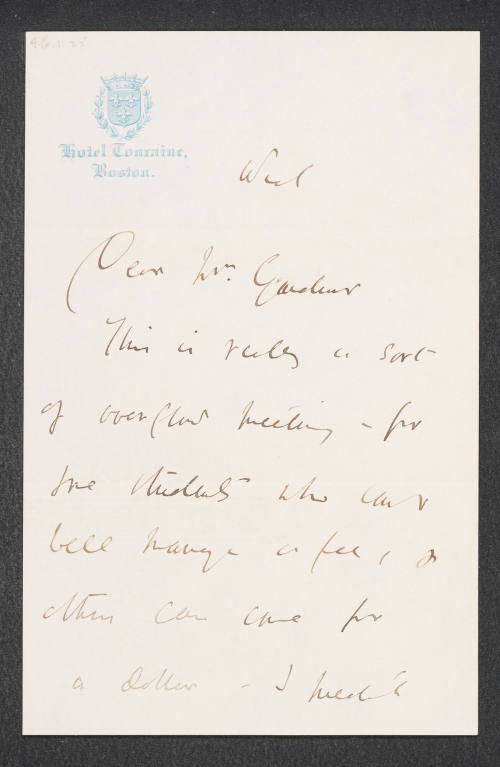 Hotel Touraine,
Boston.
Wed
Dear Mrs. Gardner
This is really a sort
of overflow meeting - for
some students who can't
well manage a fee, &
others can come for
a dollar - I